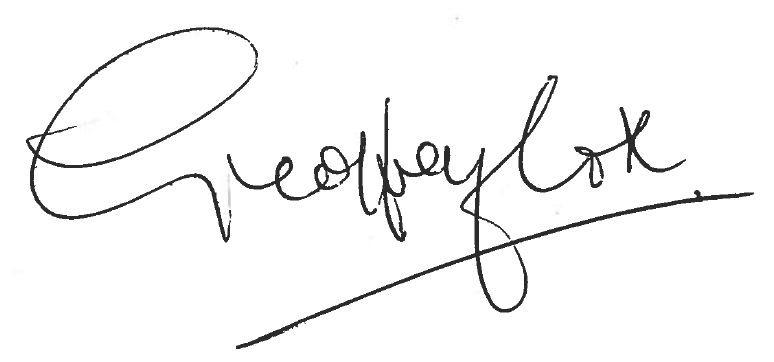 Geoffrey Lok